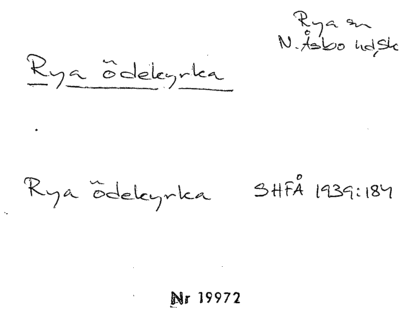 Rya sn
N. Åsbo hd, Sk
Rya ödekyrka
Rya ödekyrka SHFÅ 1939:184
Nr 19972